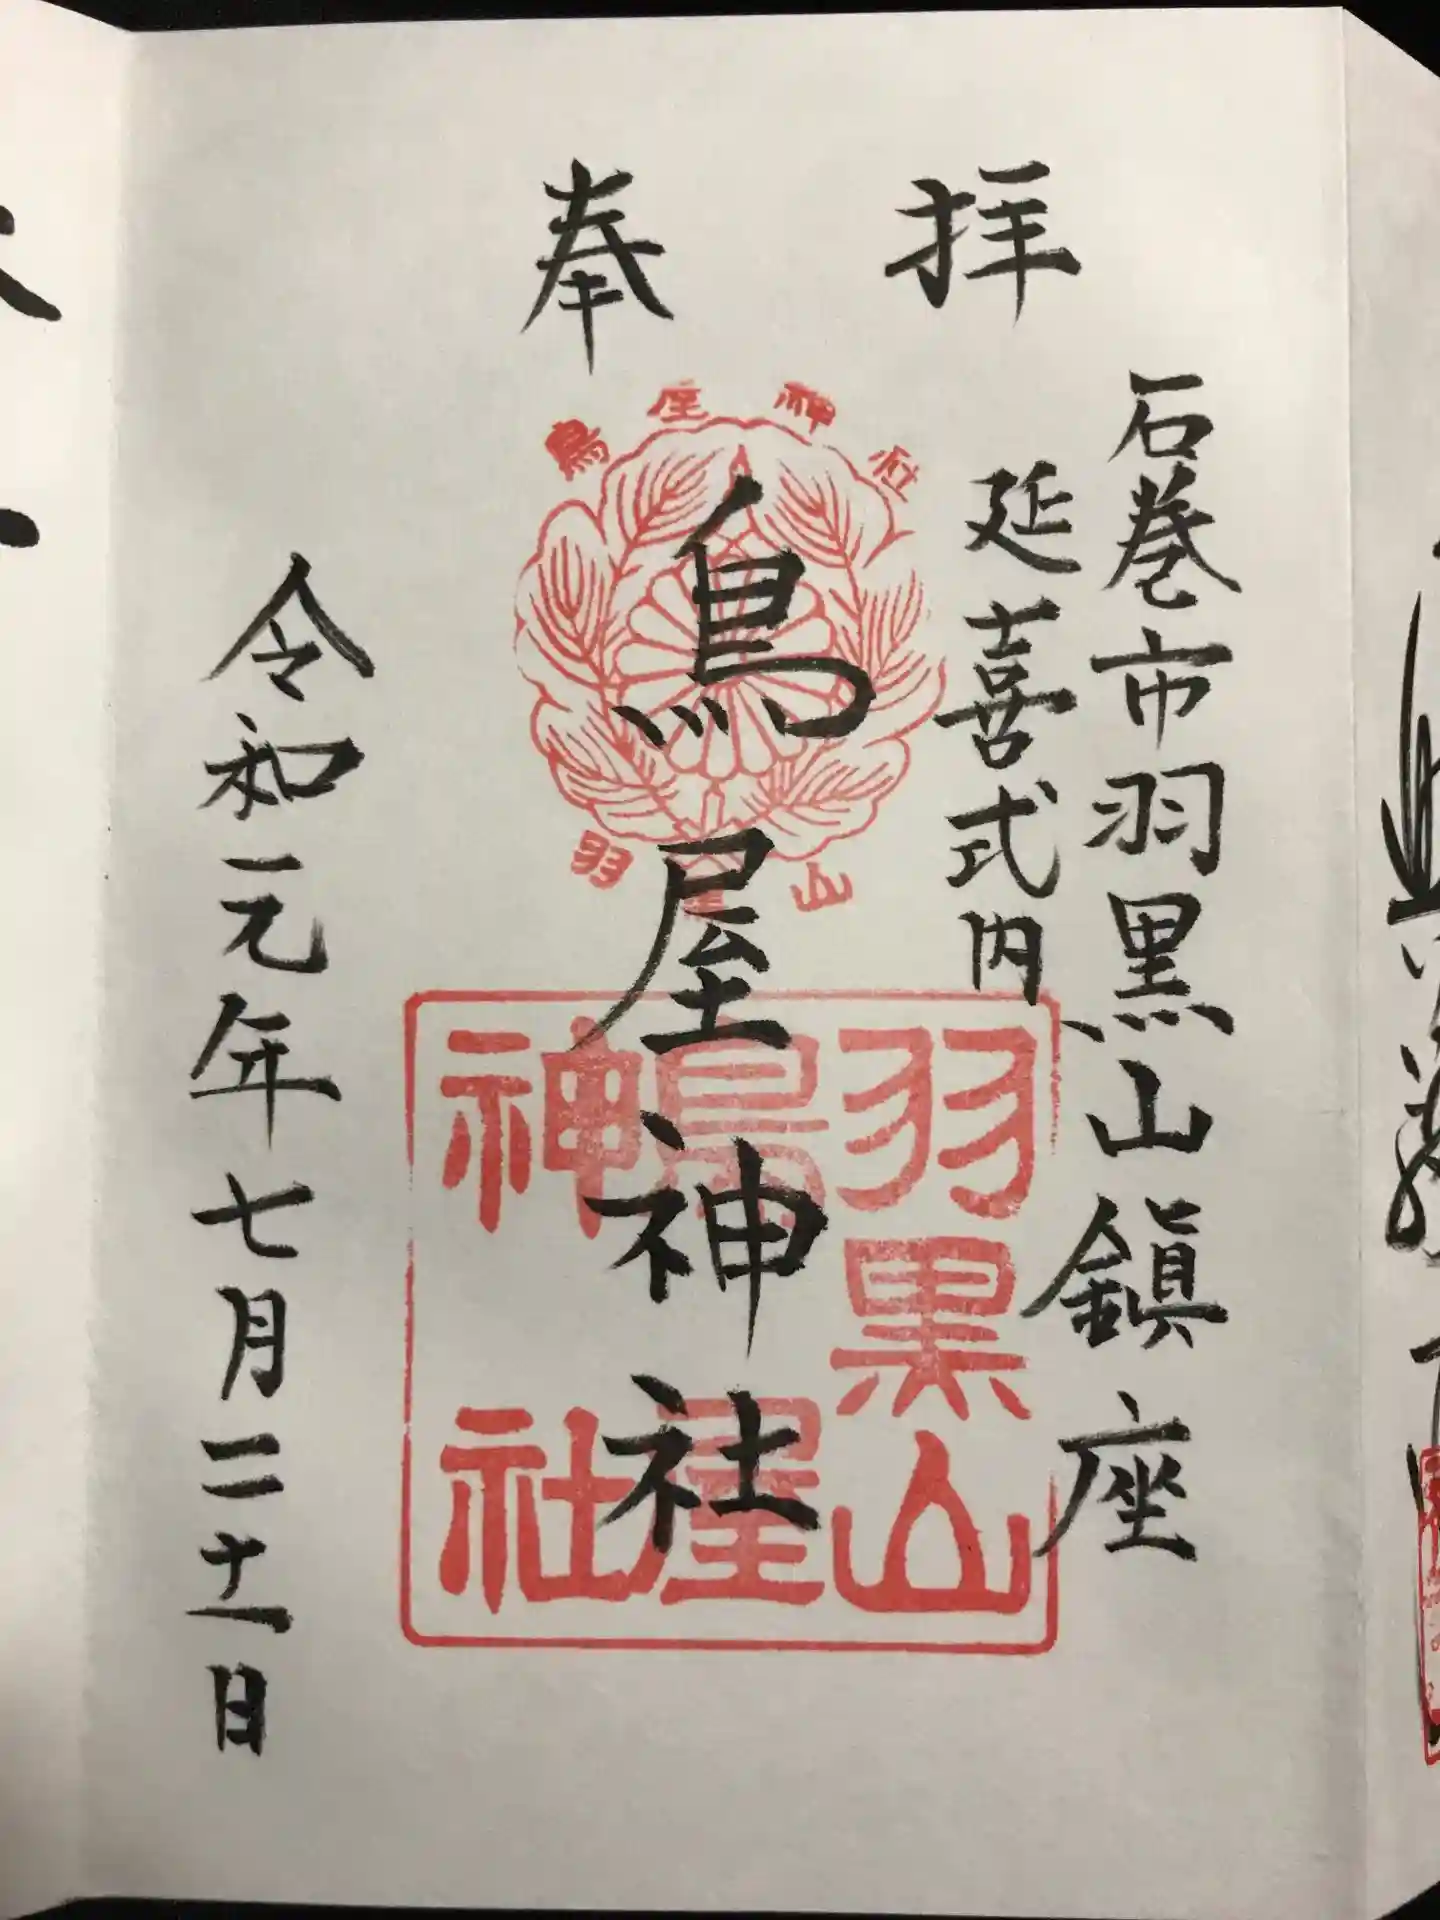 奉拝
石巻市羽黒山鎮座
延喜式内
鳥屋神社
令和元年七月二十一日
鳥屋神社
羽
山
羽黒山
鳥屋
神社